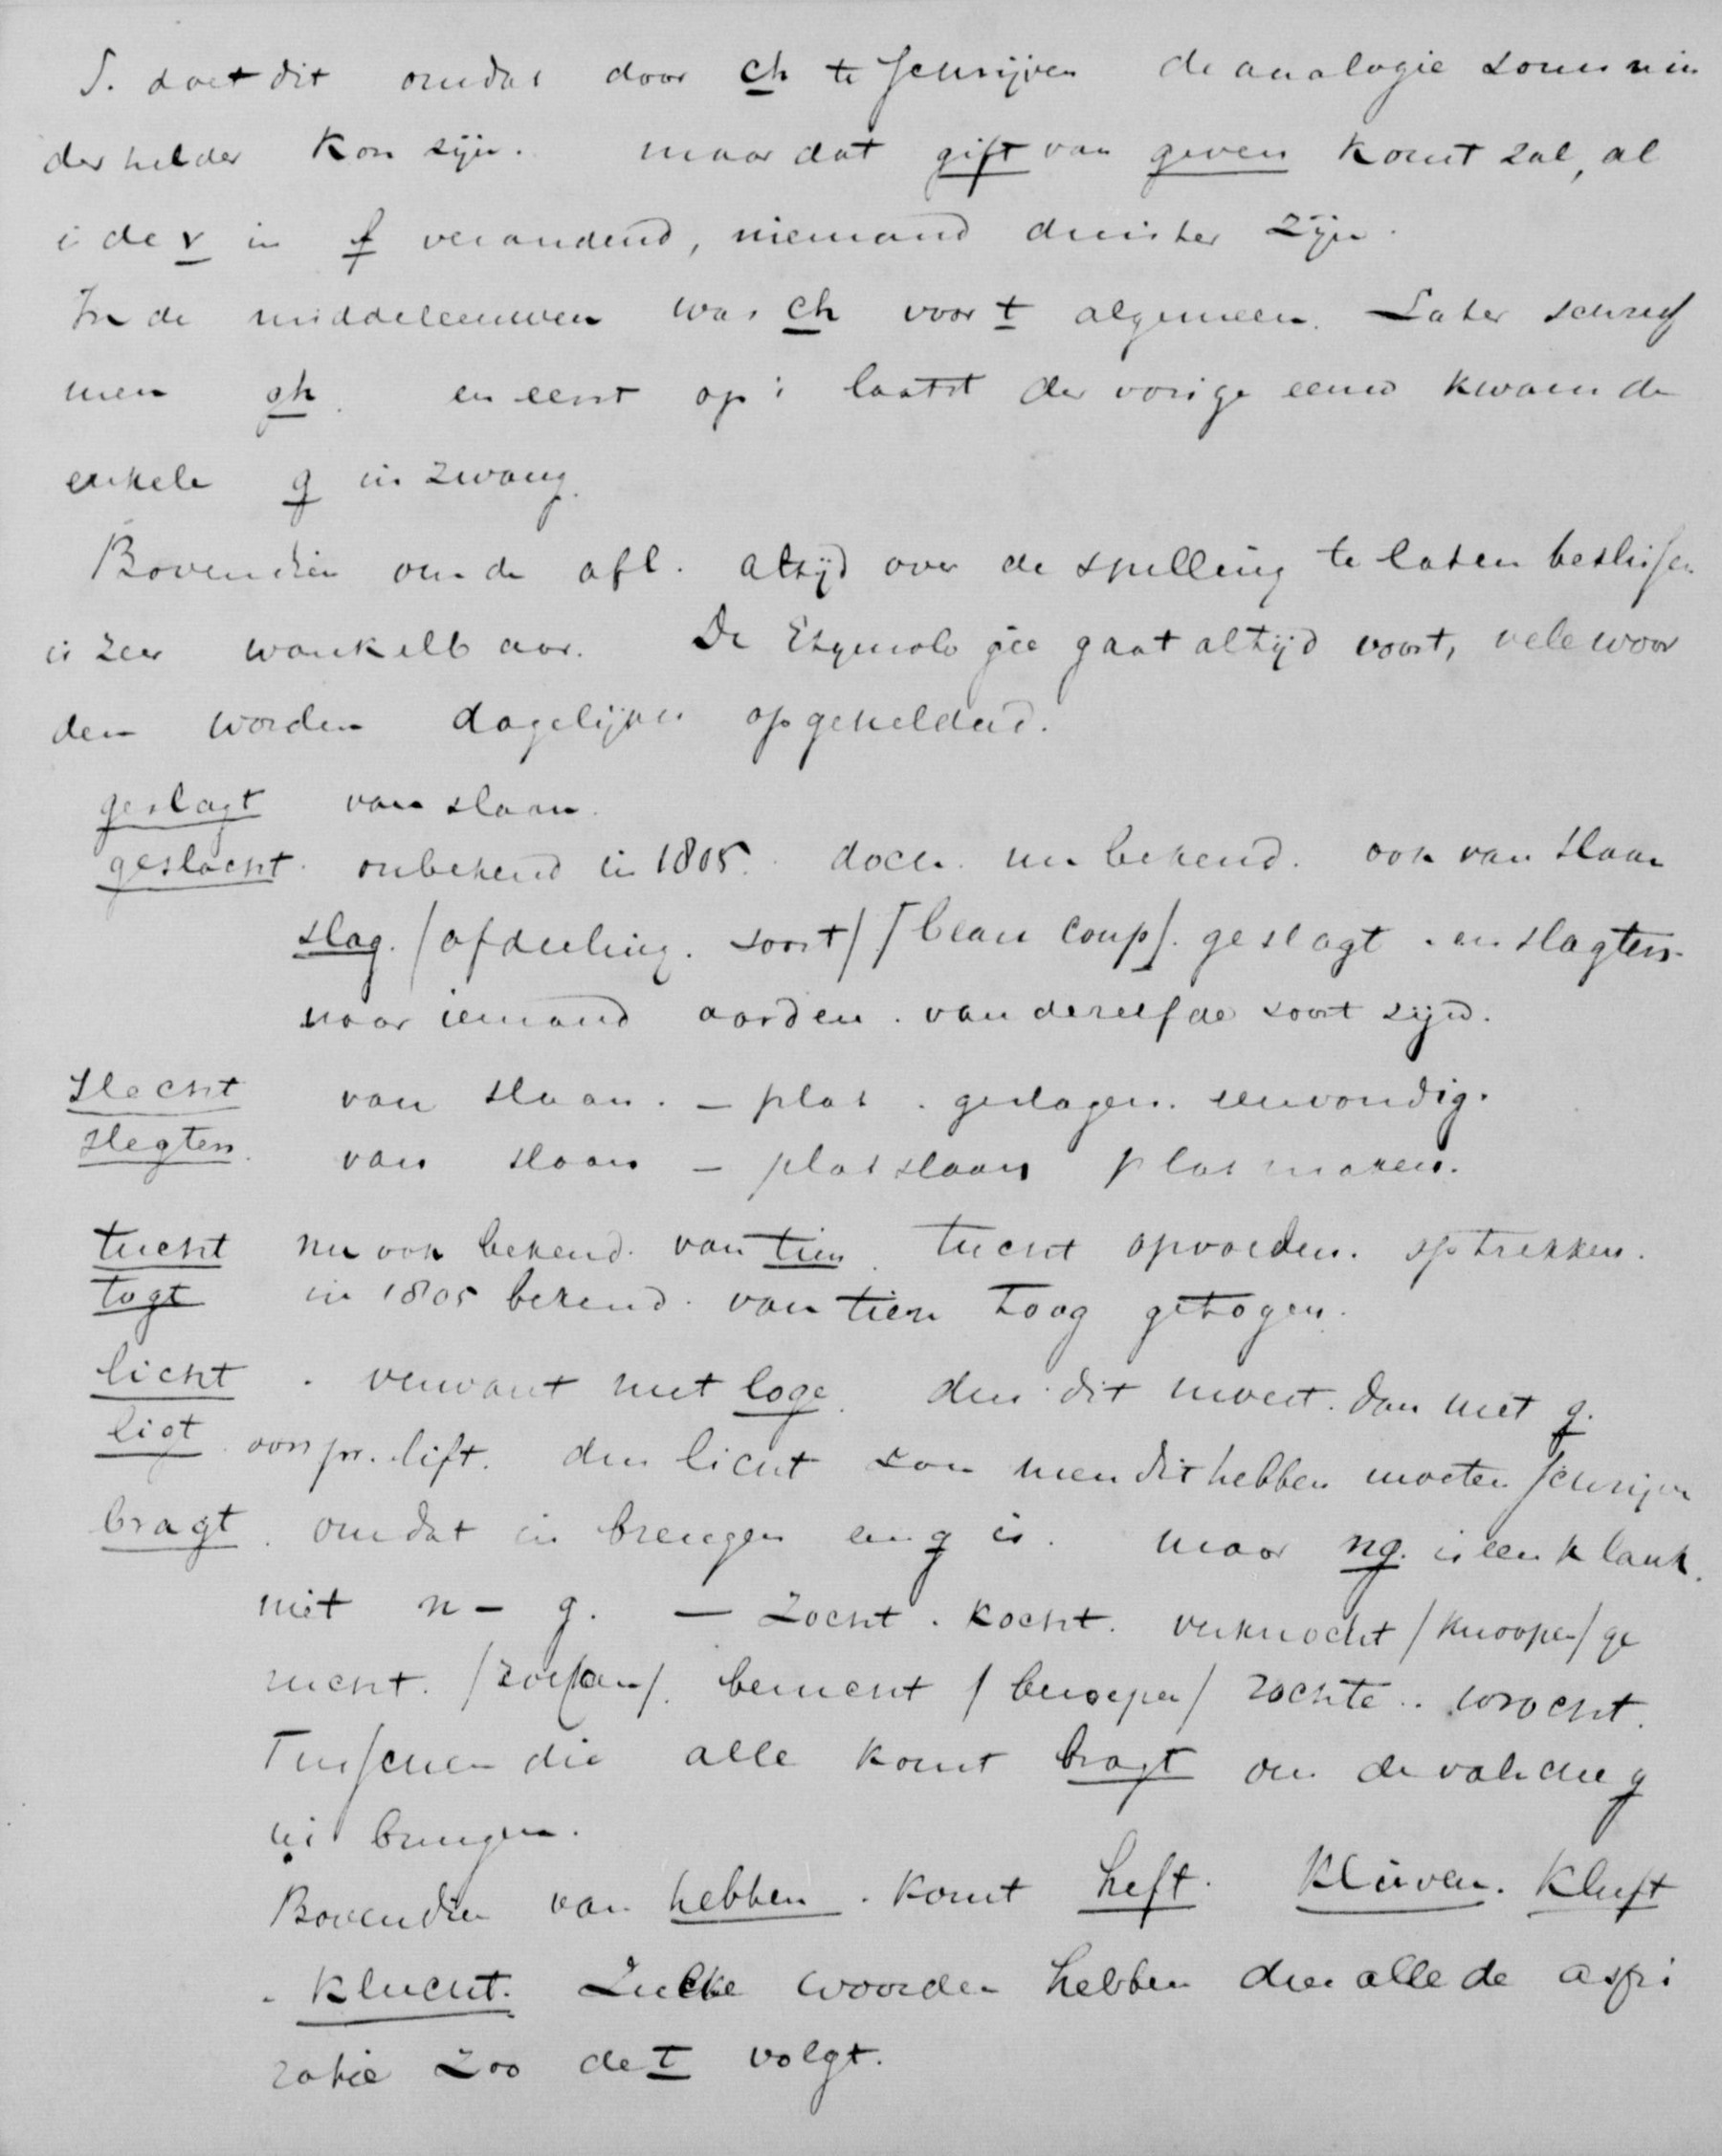 S. doet dit omdat door ch te schrijven de analogie soms min
der helder kon zijn. maar dat gift van geven komt zal, al
is de v in f veranderd, niemand duister zijn.
In de middeleeuwen was ch voor t algemeen. Later schreef
men gh. en eerst op 't laatst der vorige eeuw kwam de
enkele g in zwang.
Bovendien om de afl. altijd over de spelling te laten beslissen
is zeer wankelbaar. De Etymologie gaat altijd voort, vele woor
den worden dagelijks opgehelderd.
geslagt van slaan.
geslacht. onbekend in 1805. doch nu bekend. ook van slaan
slag. /afdeeling. soort/ /beau coup/. geslagt . en slagten.
naar iemand aarden. van dezelfde soort zijn.
Slecht van slaan. – plat . geslagen. eenvoudig.
slegten. van slaan – plat slaan plat maken.
tucht nu ook bekend. van tien. tucht opvoeden. optrekken.
togt in 1805 bekend. van tien toog getogen.
licht . verwant met loge. dus dit moest dan met g.
ligt oorspr. lift. dus licht zou men dit hebben moeten schrijven
bragt. omdat in brengen een g is. maar ng. is een klank.
niet n – g. – zocht. kocht. verknocht /knoopen/ ge
rucht. /roepen/. berucht /beroepen/ rochte.. wrocht.
Tusschen die alle komt bragt om de valsche g
in brengen.
Bovendien van hebben. komt heft. Klieven. Kluft
. klucht. Zulke woorden hebben dus alle de aspi
ratie zoo de t volgt.